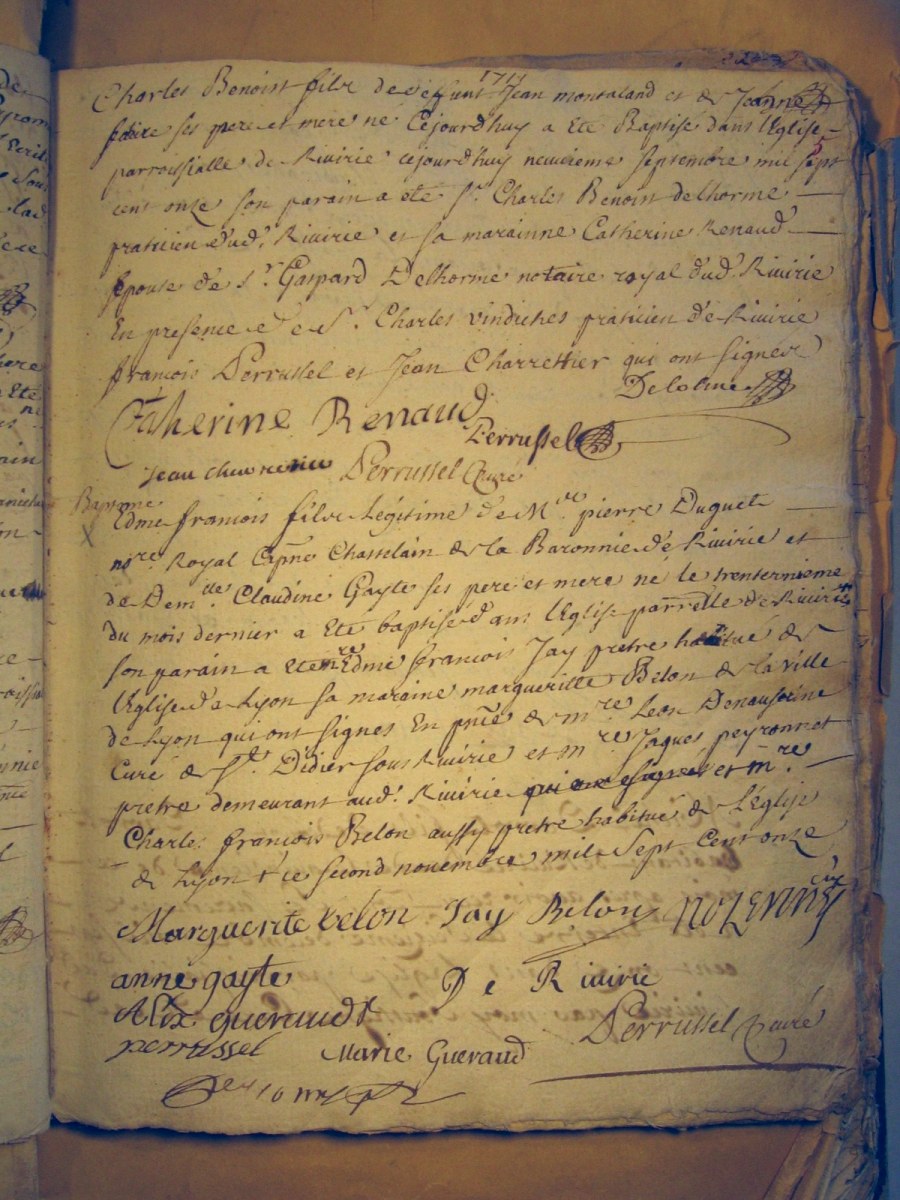 1711
Charles Benoist fils de deffunt Jean montaland et de Jeanne
faire ses pere et mere né Cejourdhuy a eté Baptisé dans l'Eglise
parroissialle de Riuirie cejourdhuy neuuieme septembre mil sept
cent onze son parain a eté Sr. Charles Benoist delhorme
praticien dud. Riuirie et sa marainne Catherine Renaud
Epouse de Sr. Gaspard Delhorme notaire royal dud. Riuirie
En presence de Sr. Charles vindrches praticien de Riuirie
françois Perrussel et Jean Charrettier qui ont signer
Delolme
Catherine Renaud
Perrussel
Jean Perrussel Curé
Baptesme
Edme françois fils Légitime de Mre pierre Duguet
nore Royal Capne Chastelain de la Baronnie de Riuirie et
de Demlle Claudine Gayte ses pere et mere né le trenternieme
du mois dernier a eté baptisé dans l'Eglise parrelle de Riuirie
son parain a eté mre Edme françois Jay pretre habitué de
l'Eglise de Lyon sa maraine margueritte Belon de la ville
de Lyon qui ont signes En pnce de mre Leon Denauserine
Curé de St. Didier sous Riuirie et mre Jaques peyronnet
pretre demeurant aud. Riuirie qui ont signes et mre.
Charles françois Belon aussy pretre habitué de L'Eglise
de Lyon ce second nouembre mil Sept Cent onze
Marguerite belon Jay Belon
anne gayte De Riuirie
Alix gueraudt Perrussel Curé
perrussel Marie Gueraud